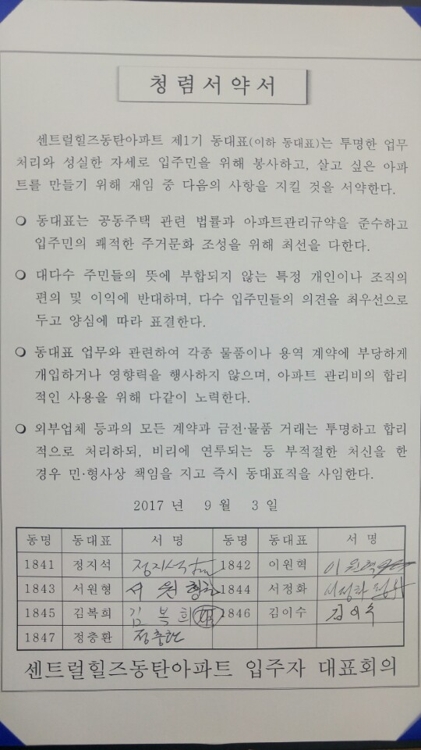 청렴서약서
센트럴힐즈동탄아파트 제1기 동대표(이하 동대표)는 투명한 업무
처리와 성실한 자세로 입주민을 위해 봉사하고, 살고 싶은 아파
트를 만들기 위해 재임 중 다음의 사항을 지킬 것을 서약한다.
○ 동대표는 공동주택 관련 법률과 아파트관리규약을 준수하고
입주민의 쾌적한 주거문화 조성을 위해 최선을 다한다.
○ 대다수 주민들의 뜻에 부합되지 않는 특정 개인이나 조직의
편의 및 이익에 반대하며, 다수 입주민들의 의견을 최우선으로
두고 양심에 따라 표결한다.
○ 동대표 업무와 관련하여 각종 물품이나 용역 계약에 부당하게
개입하거나 영향력을 행사하지 않으며, 아파트 관리비의 합리
적인 사용을 위해 다같이 노력한다.
○ 외부업체 등과의 모든 계약과 금전·물품 거래는 투명하고 합리
적으로 처리하되, 비리에 연루되는 등 부적절한 처신을 한
경우 민·형사상 책임을 지고 즉시 동대표직을 사임한다.
2017 년 9 월 3 일
동명 동대표 서 명 동명 동대표 서 명
1841 정지석 정지석 1842 이원혁 이원혁
1843 서원형 서원형 1844 서정화 서정화
1845 김복희 김복희 1846 김이수 김이수
1847 정충환 정충환
센트럴힐즈동탄아파트 입주자 대표회의